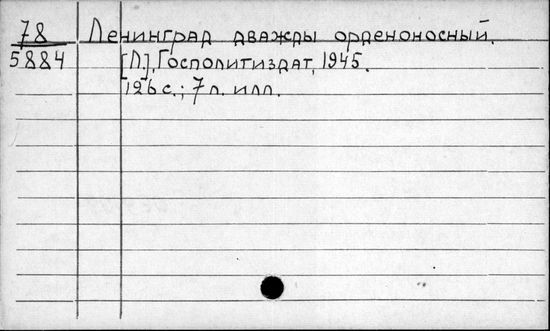 78 Ленинград дважды орденоносный.
5884 [Л.], Госполитиздат, 1945.
126 с.; 7 л. илл.